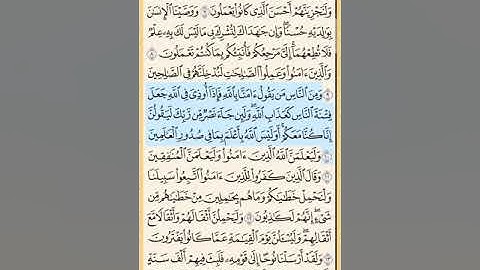 وَلَنَجْزِيَنَّهُمْ أَحْسَنَ ٱلَّذِى كَانُوا۟ يَعْمَلُونَ ٧ وَوَصَّيْنَا ٱلْإِنسَٰنَ
بِوَٰلِدَيْهِ حُسْنًا وَإِن جَٰهَدَاكَ لِتُشْرِكَ بِى مَا لَيْسَ لَكَ بِهِۦ عِلْمٌ
فَلَا تُطِعْهُمَآ إِلَىَّ مَرْجِعُكُمْ فَأُنَبِّئُكُم بِمَا كُنتُمْ تَعْمَلُونَ ٨
وَٱلَّذِينَ ءَامَنُوا۟ وَعَمِلُوا۟ ٱلصَّٰلِحَٰتِ لَنُدْخِلَنَّهُمْ فِى ٱلصَّٰلِحِينَ
٩ وَمِنَ ٱلنَّاسِ مَن يَقُولُ ءَامَنَّا بِٱللَّهِ فَإِذَآ أُوذِىَ فِى ٱللَّهِ جَعَلَ
فِتْنَةَ ٱلنَّاسِ كَعَذَابِ ٱللَّهِ وَلَئِن جَآءَ نَصْرٌ مِّن رَّبِّكَ لَيَقُولُنَّ
إِنَّا كُنَّا مَعَكُمْ أَوَلَيْسَ ٱللَّهُ بِأَعْلَمَ بِمَا فِى صُدُورِ ٱلْعَٰلَمِينَ
١٠ وَلَيَعْلَمَنَّ ٱللَّهُ ٱلَّذِينَ ءَامَنُوا۟ وَلَيَعْلَمَنَّ ٱلْمُنَٰفِقِينَ
١١ وَقَالَ ٱلَّذِينَ كَفَرُوا۟ لِلَّذِينَ ءَامَنُوا۟ ٱتَّبِعُوا۟ سَبِيلَنَا
وَلْنَحْمِلْ خَطَٰيَٰكُمْ وَمَا هُم بِحَٰمِلِينَ مِنْ خَطَٰيَٰهُم مِّن
شَىْءٍ إِنَّهُمْ لَكَٰذِبُونَ ١٢ وَلَيَحْمِلُنَّ أَثْقَالَهُمْ وَأَثْقَالًا مَّعَ
أَثْقَالِهِمْ وَلَيُسْـَٔلُنَّ يَوْمَ ٱلْقِيَٰمَةِ عَمَّا كَانُوا۟ يَفْتَرُونَ
١٣ وَلَقَدْ أَرْسَلْنَا نُوحًا إِلَىٰ قَوْمِهِۦ فَلَبِثَ فِيهِمْ أَلْفَ سَنَةٍ